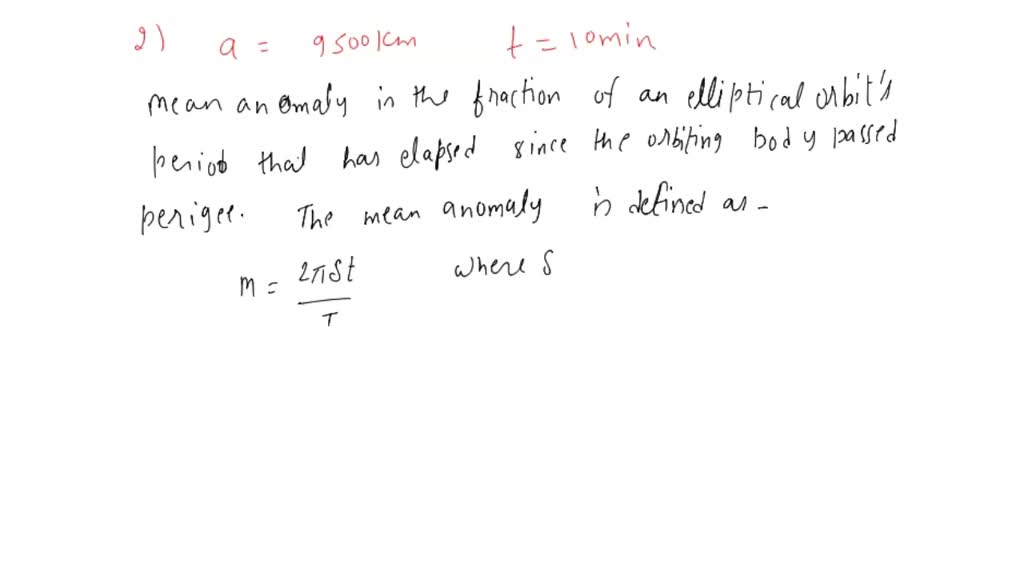 2) a = 9500km t = 10min
mean anomaly in the fraction of an elliptical orbit's
period that has elapsed since the orbiting body passed
perigee. The mean anomaly is defined as -
m = 2πδt / T where δ